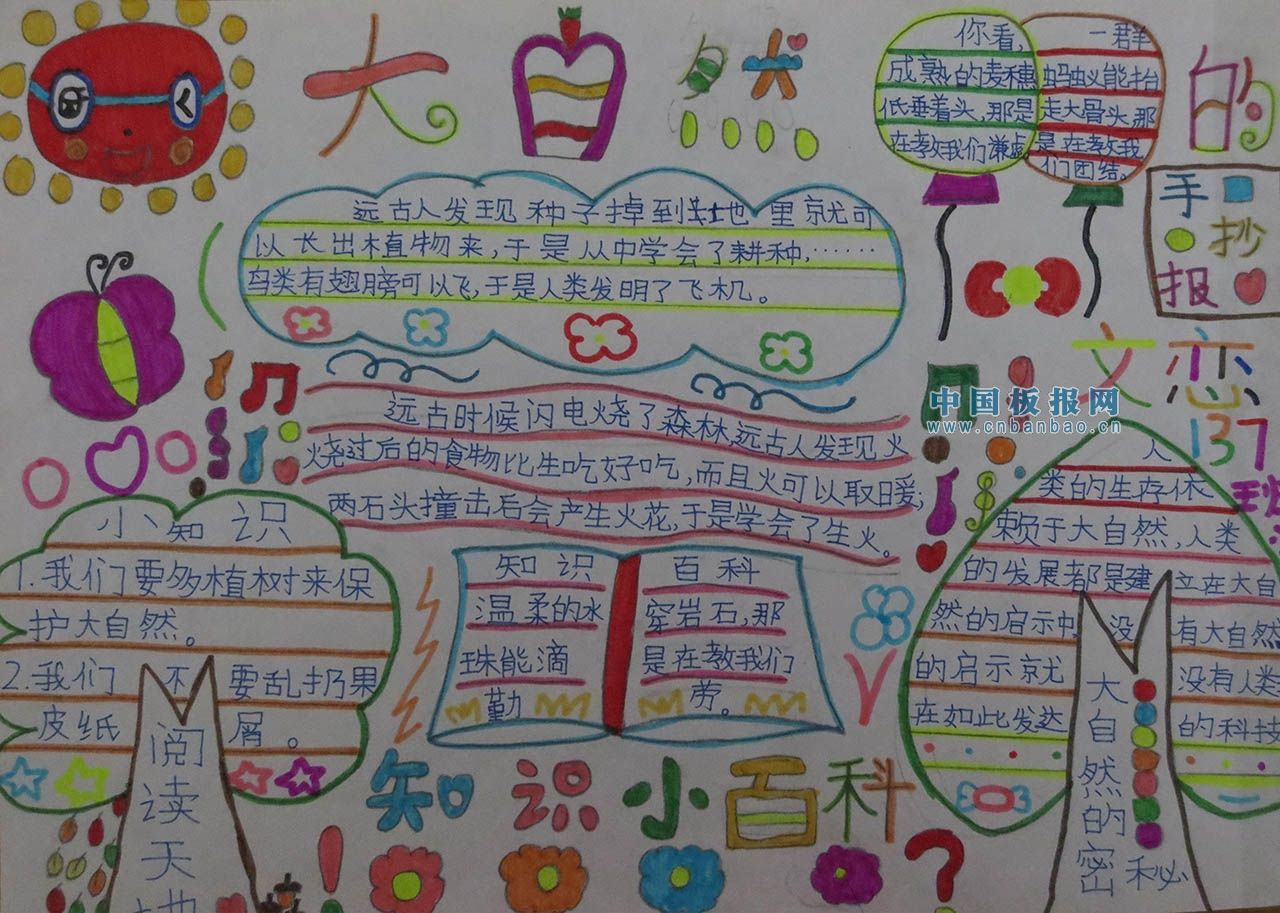 大自然
的
手抄报
你看,
成熟的麦穗
低垂着头,那是
在教我们谦虚
一群
蚂蚁能抬
走大骨头,那
是在教我
们团结。
远古人发现种子掉到土地里就可
以长出植物来,于是从中学会了耕种,……
鸟类有翅膀可以飞,于是人类发明了飞机。
远古时候闪电烧了森林,远古人发现火
烧过后的食物比生吃好吃,而且火可以取暖;
两石头撞击后会产生火花,于是学会了生火。
中国板报网
www.cnbanbao.cn
文恋
137
小知识
1.我们要多植树来保
护大自然。
2.我们不要乱扔果
皮纸屑。
阅读天地
知识
温柔的水
珠能滴
勤
百科
穿岩石,那
是在教我们
劳。
人
类的生存依
赖于大自然,人类
的发展都是建立在大自
然的启示中,没有大自然
的启示就没有人类
在如此发达的科技
大自然的密秘
知识小百科